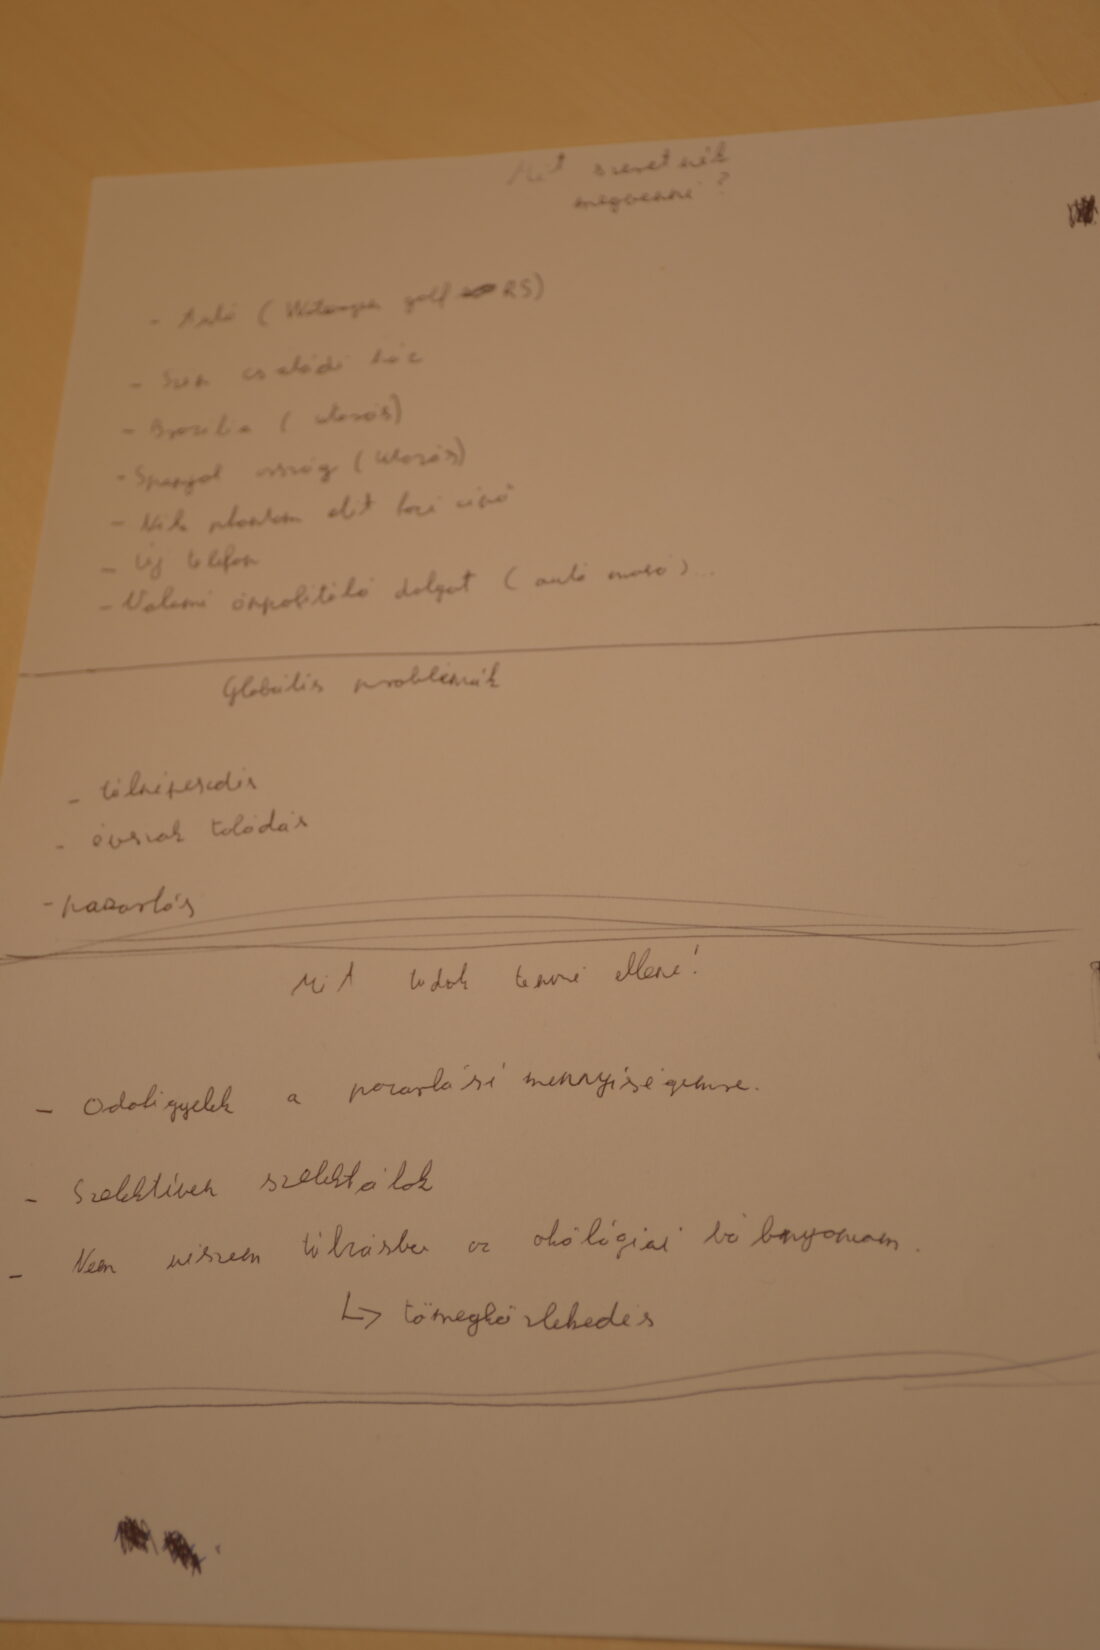 Mit szeretnék
megvenni?
- Autó ( golf RS)
- Szép családi ház
- Brazilia (utazás)
- Spanyol ország (utazás)
- Nik phantom elit foci cipő
- Új telefon
- Valami önpolitóló dolgot (autó mosó)...
Globális problémák
- túlnépesedés
- évszak tolódás
- pazarlás
Mit tudok tenni ellene!
- Odafigyelek a pazarlási mennyiségemre.
- Szelektíven szelektálok
- Nem viszem túlzásba az ökológiai lá bnyomom.
↳ tömegközlekedés